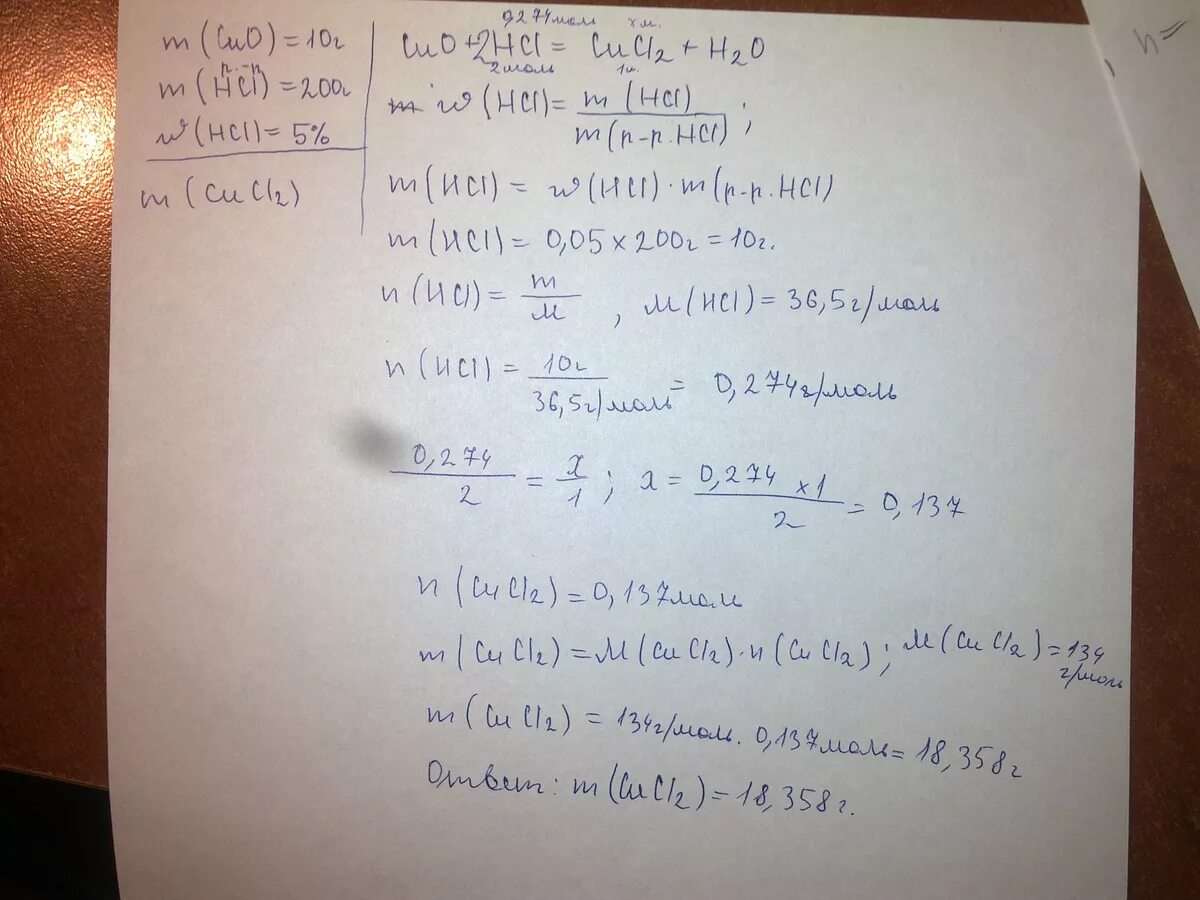 m (CuO) = 10г
р.-р
m (HCl) = 200г
w (HCl) = 5%
m (CuCl₂)
0,274моль х м.
CuO + 2HCl = CuCl₂ + H₂O
2моль 1м.
w (HCl) = m (HCl) / m (р-р. HCl) ;
m (HCl) = w (HCl) · m (р-р. HCl)
m (HCl) = 0,05 × 200г = 10г.
n (HCl) = m / M , M (HCl) = 36,5г/моль
n (HCl) = 10г / 36,5г/моль = 0,274г/моль
0,274 / 2 = x / 1 ; x = 0,274 × 1 / 2 = 0,137
n (CuCl₂) = 0,137моль
m (CuCl₂) = M (CuCl₂) · n (CuCl₂) ; M (CuCl₂) = 134 г/моль
m (CuCl₂) = 134г/моль · 0,137моль = 18,358г
Ответ: m (CuCl₂) = 18,358г.
n =